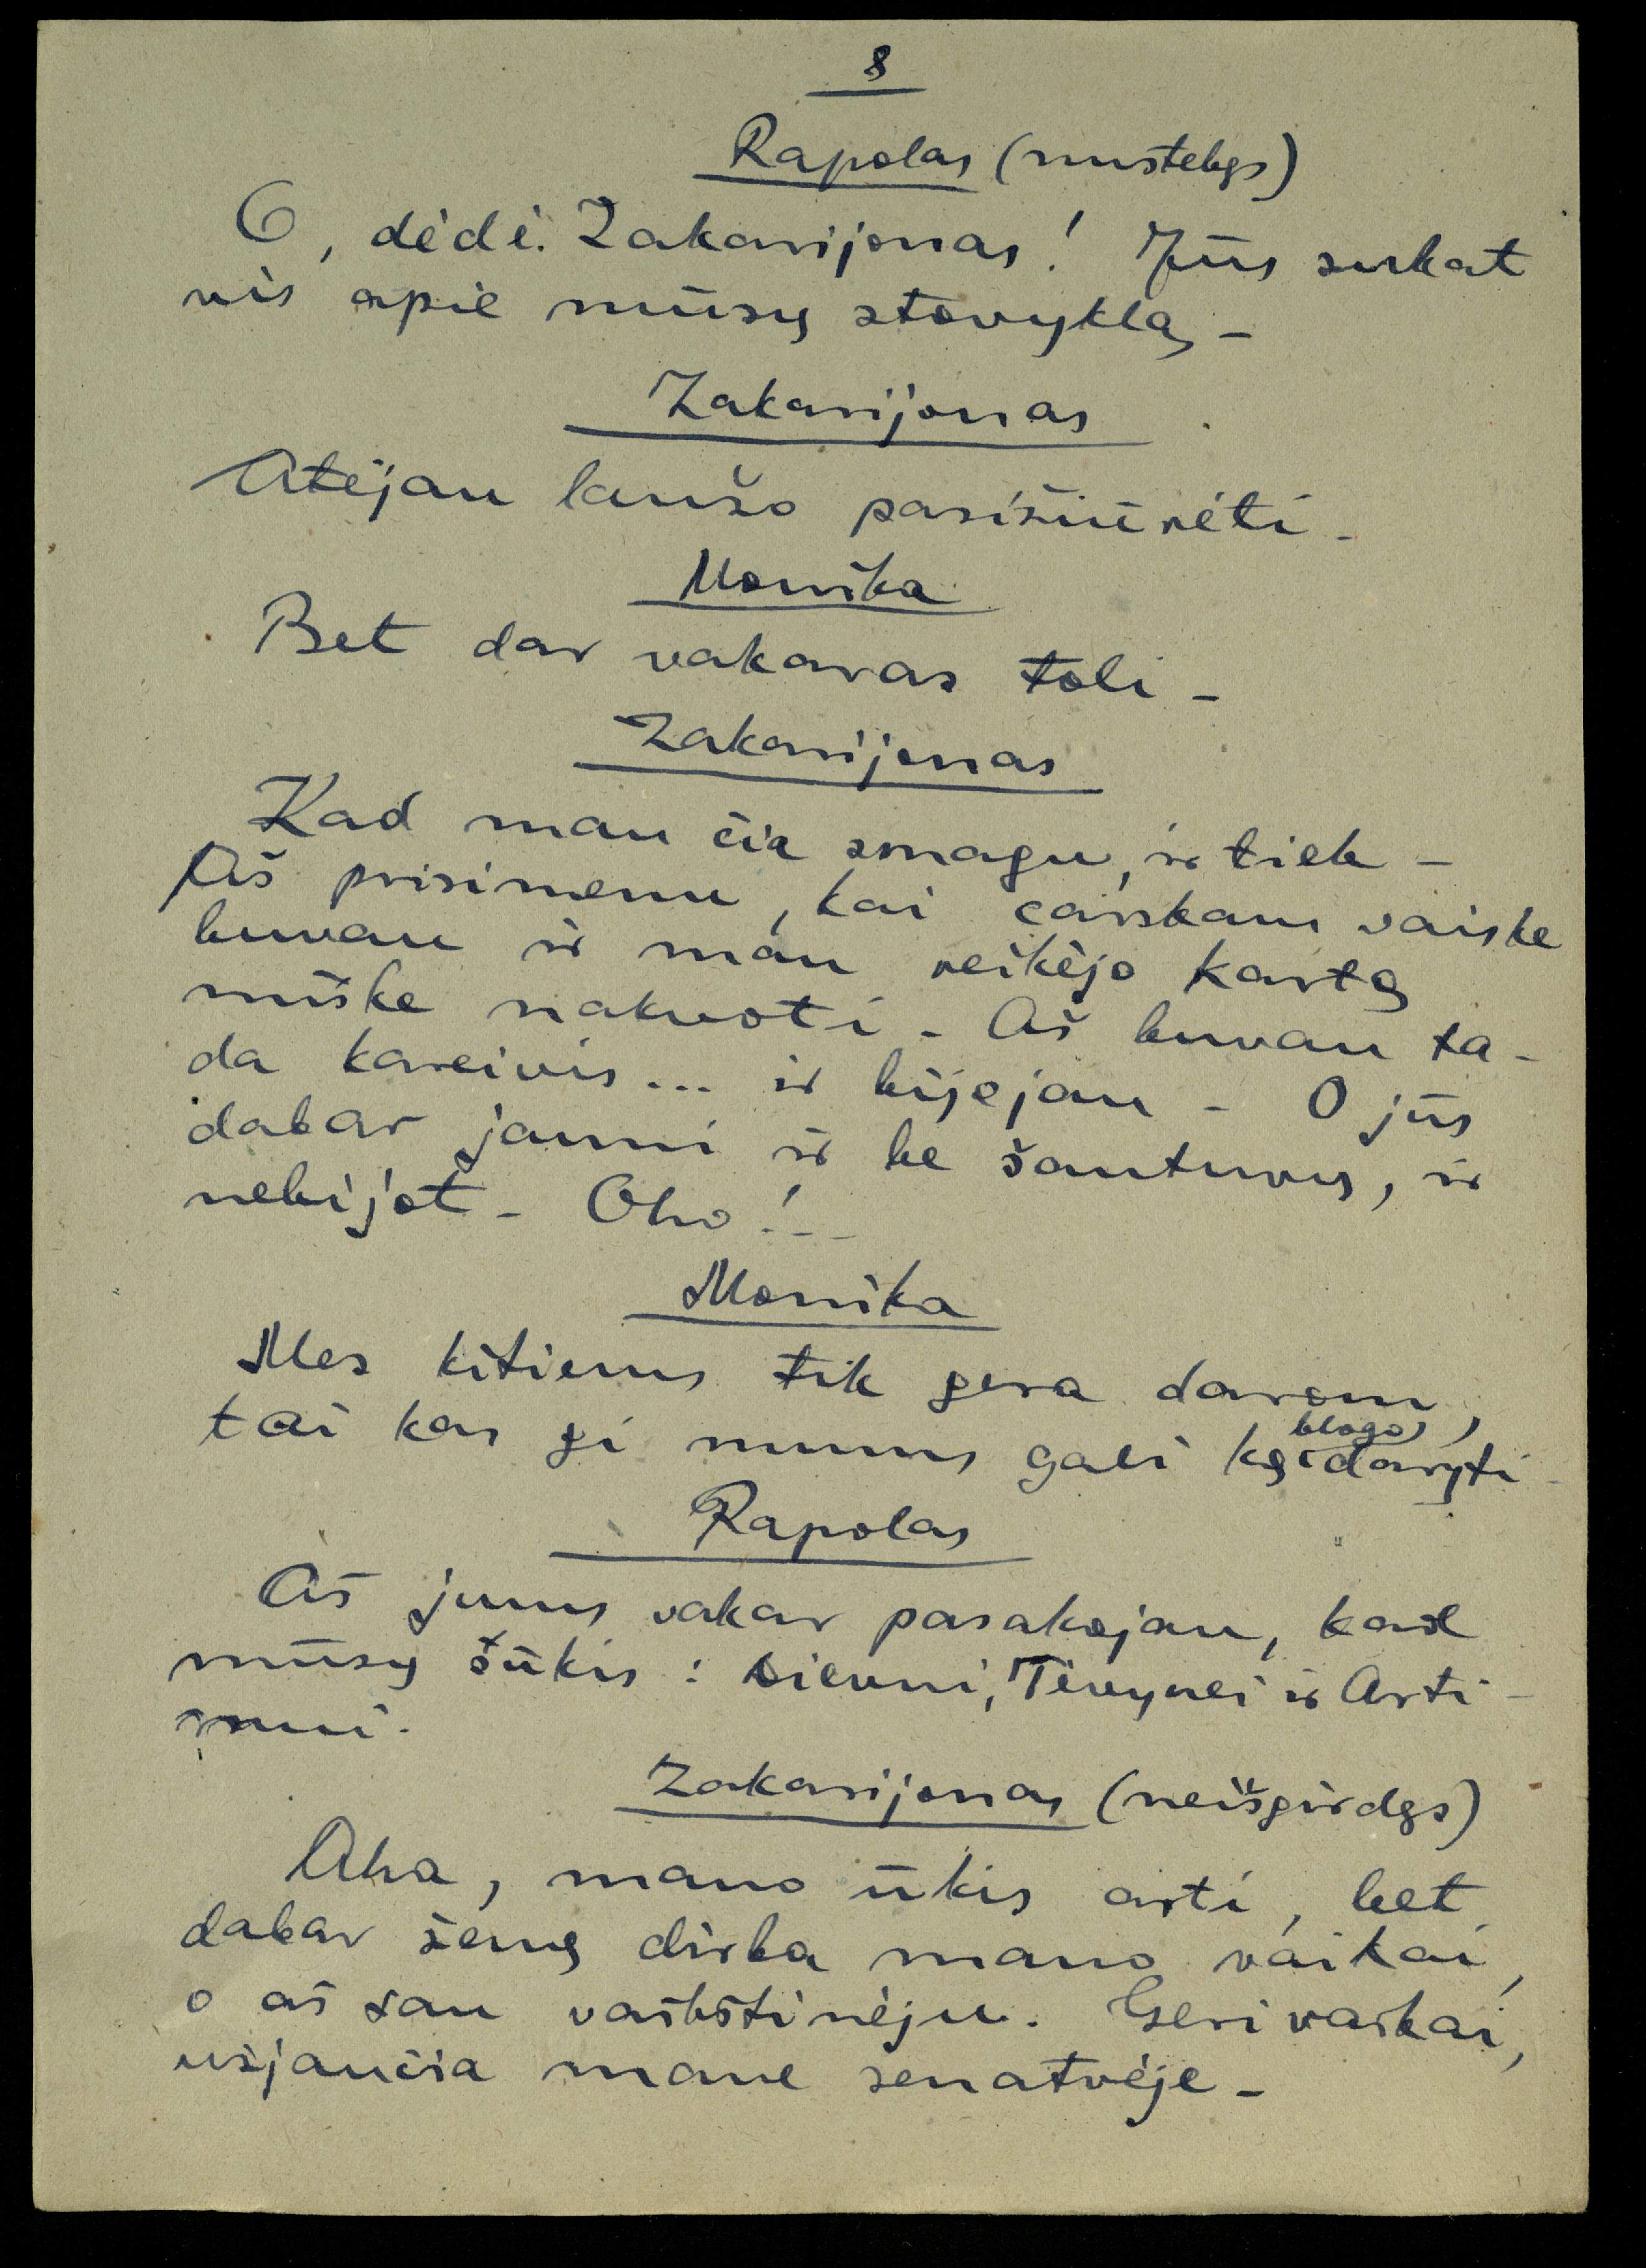 8
Rapolas (nustebęs)
O, dėdė Zakarijonas! Jūs sukat
vis apie mūsų stovyklą –
Zakarijonas
Atėjau laužo pasižiūrėti –
Monika
Bet dar vakaras toli –
Zakarijonas
Kad man čia smagu, ir tiek –
Aš prisimenu, kai carskam vaiske
buvau ir man reikėjo kartą
miške nakvoti – Aš buvau ta-
da kareivis... ir bijojau – O jūs
dabar jauni ir be šautuvų, ir
nebijot – Oho! –
Monika
Mes kitiems tik gera darom,
tai kas gi mums gali ką blogo daryti –
Rapolas
Aš jums vakar pasakojau, kad
mūsų šūkis: Dievui, Tėvynei ir Arti-
mui.
Zakarijonas (neišgirdęs)
Aha, mano ūkis arti, bet
dabar žemę dirba mano vaikai,
o aš sau vaikštinėju. Geri vaikai,
užjaučia mane senatvėje –